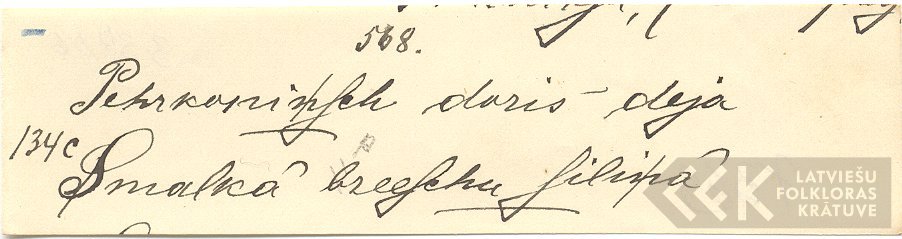 568.
Pehrkoninſch doris deja
134c
Smalkâ breeſchu ſiliņâ
LATVIEŠU
FOLKLORAS
KRĀTUVE